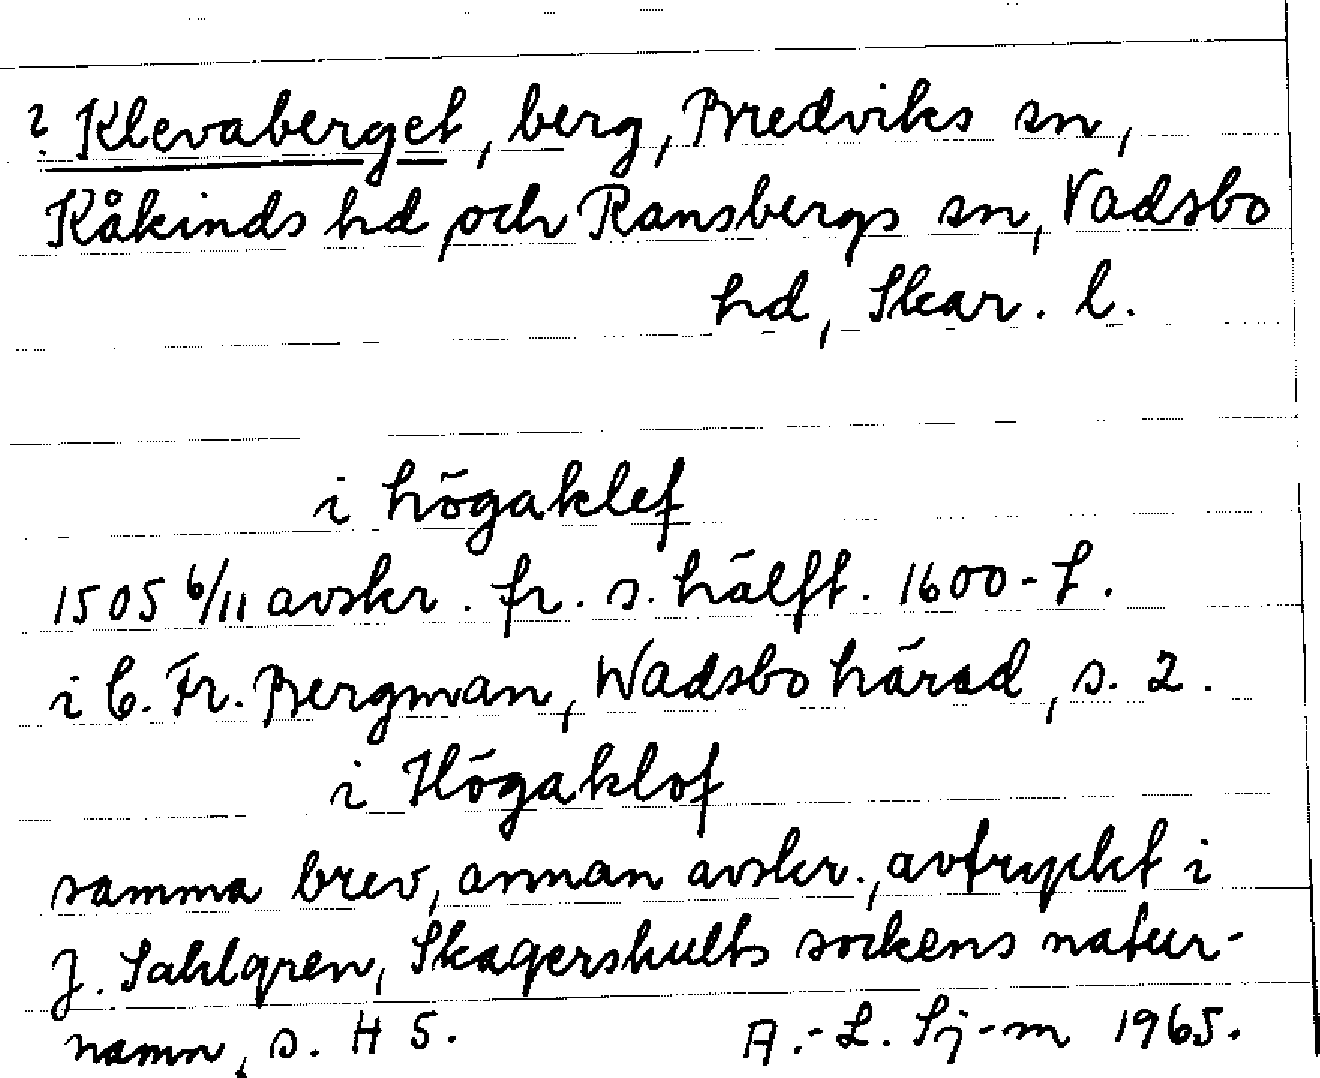 ? Klevaberget, berg, Bredviks sn,
Kåkinds hd och Ransbergs sn, Vadsbo
hd, Skar. l.
i högaklef
1505 6/11 avskr. fr. s. hälft. 1600-t.
i C. Fr. Bergman, Wadsbo härad, s. 2.
i Högaklof
samma brev, annan avskr., avtryckt i
J. Sahlgren, Skagershults sockens natur-
namn, s. H 5. A.-L. Sj-m 1965.